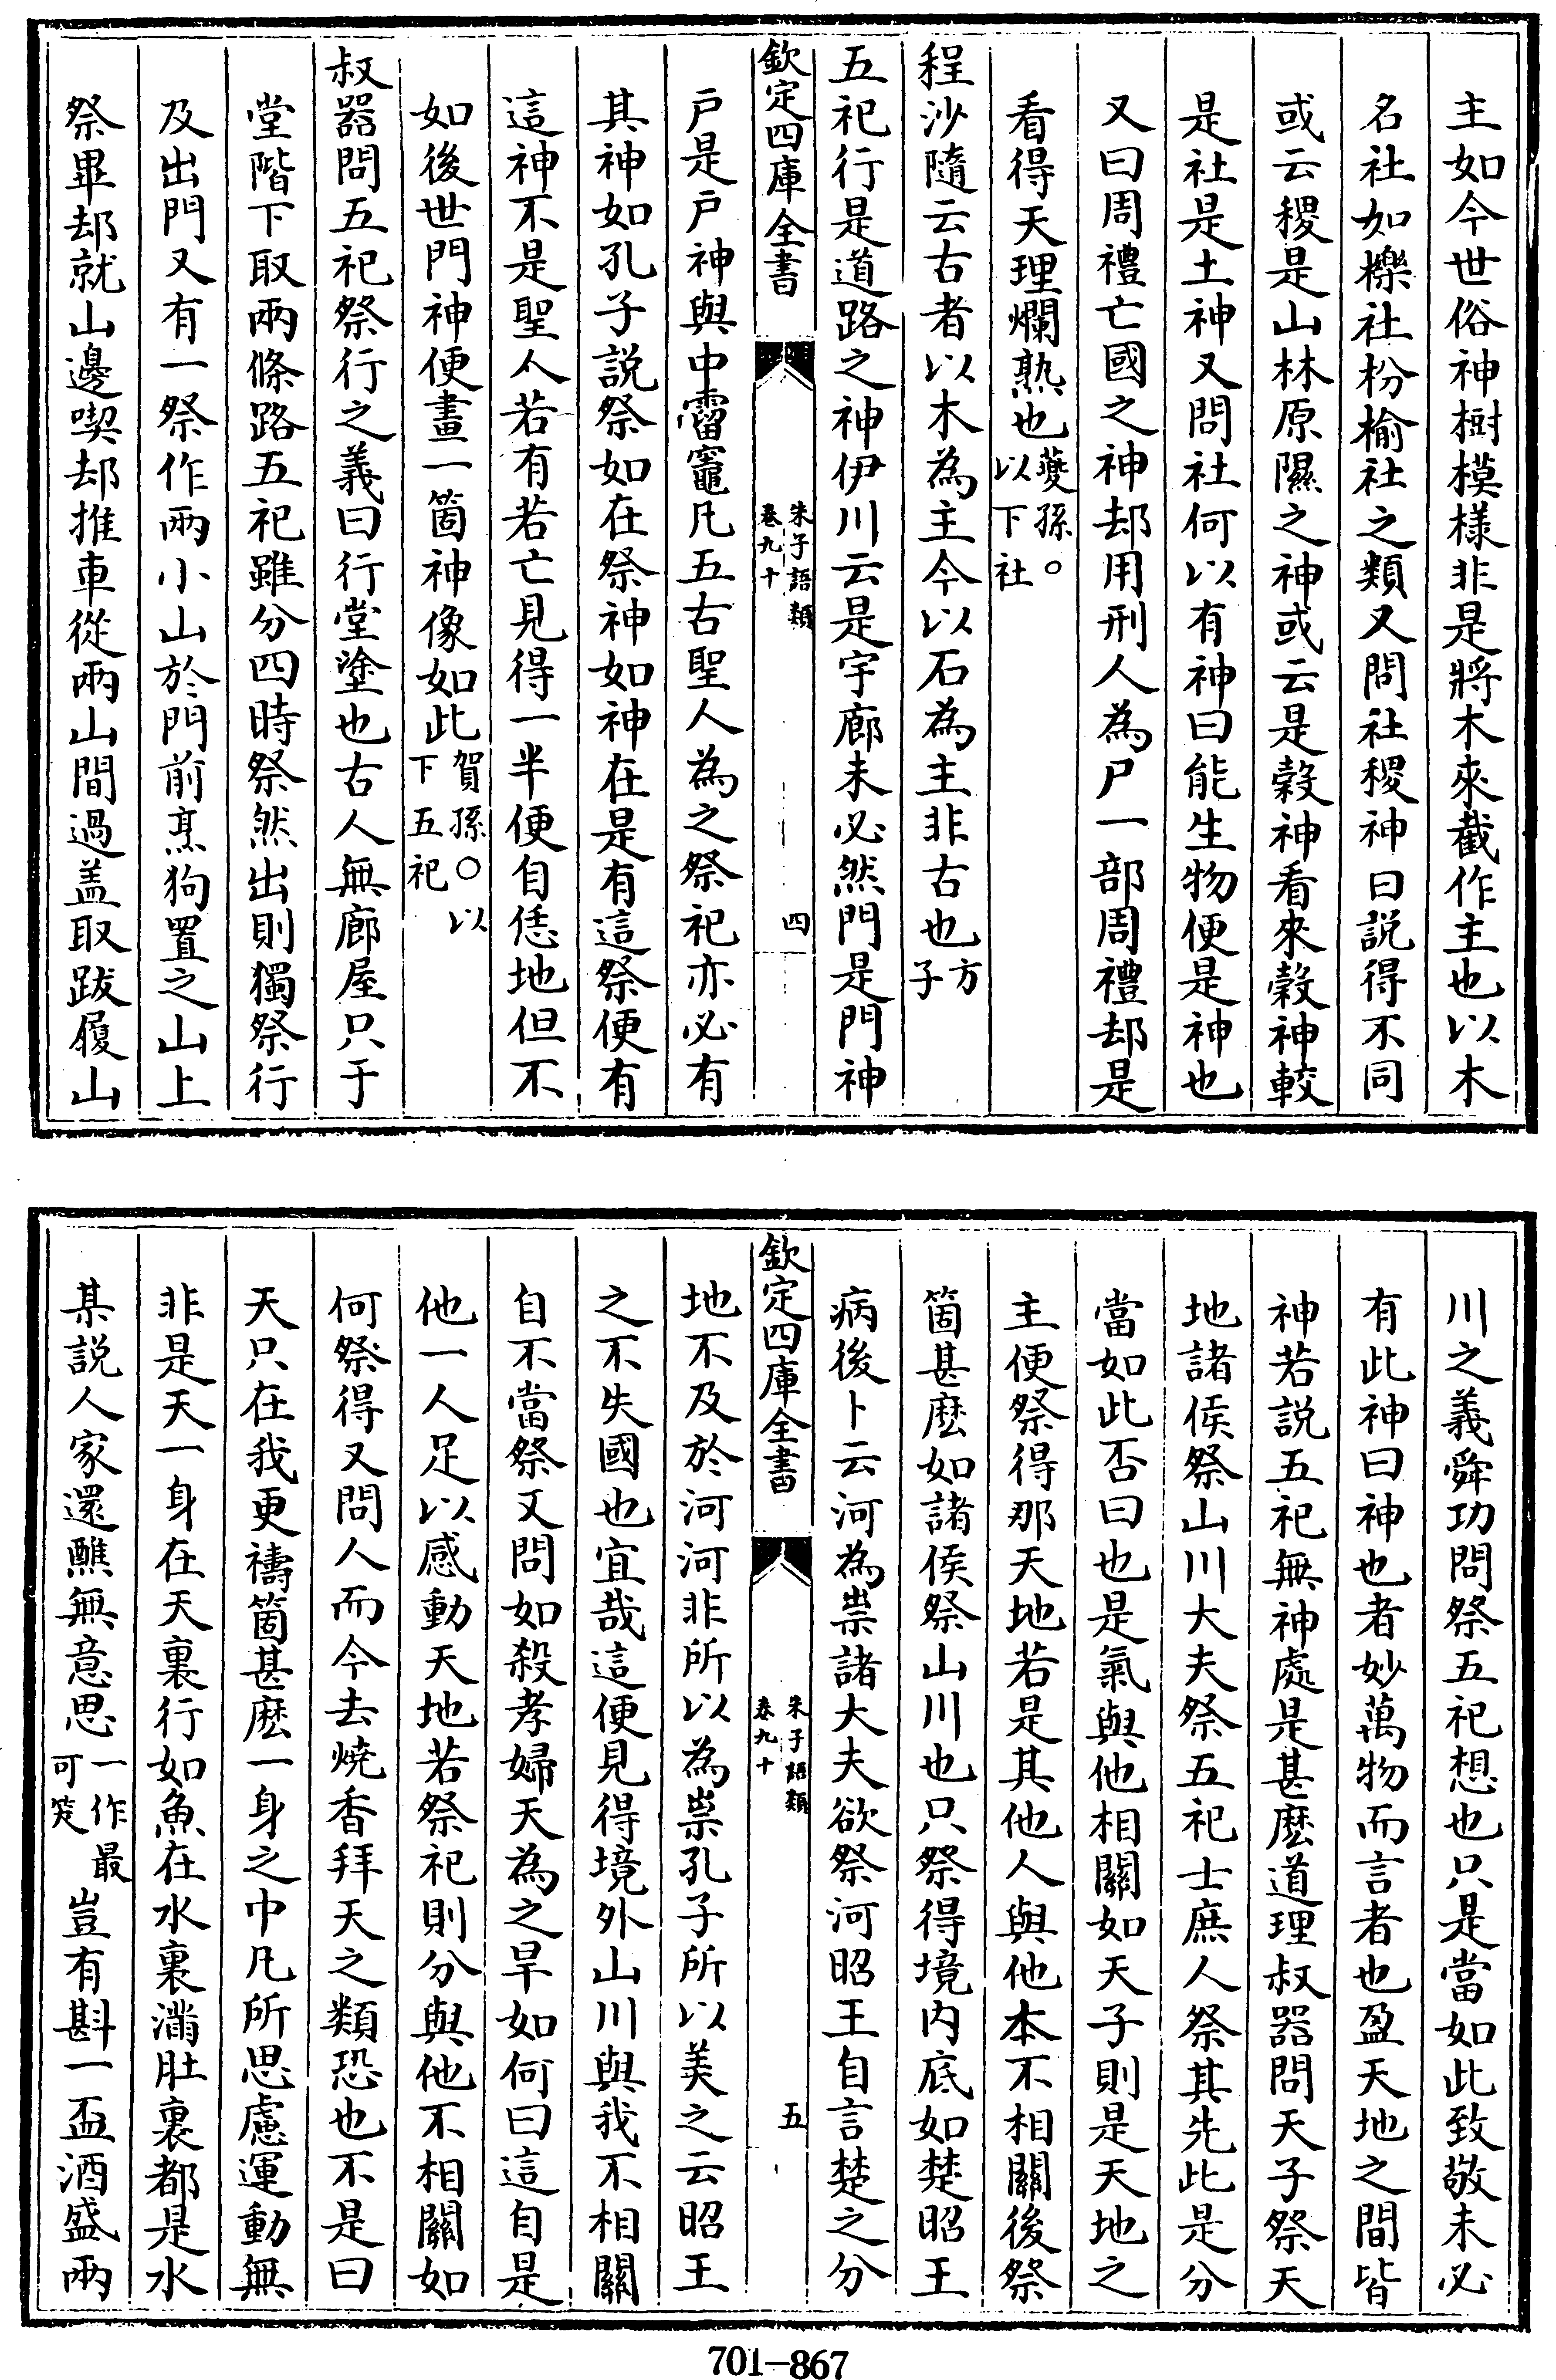 主如今世俗神樹模樣非是將木來截作主也以木
名社如櫟社枌榆社之類又問社稷神曰説得不同
或云稷是山林原隰之神或云是穀神看來穀神較
是社是土神又問社何以有神曰能生物便是神也
又曰周禮亡國之神却用刑人為尸一部周禮却是
看得天理爛熟也夔孫○以下社
程沙隨云古者以木為主今以石為主非古也方子
五祀行是道路之神伊川云是宇廊未必然門是門神
欽定四庫全書 朱子語類卷九十 四
戸是戸神與中霤竈凡五古聖人為之祭祀亦必有
其神如孔子説祭如在祭神如神在是有這祭便有
這神不是聖人若有若亡見得一半便自恁地但不
如後世門神便畫一箇神像如此賀孫○以下五祀
叔器問五祀祭行之義曰行堂塗也古人無廊屋只于
堂階下取兩條路五祀雖分四時祭然出則獨祭行
及出門又有一祭作兩小山於門前烹狗置之山上
祭畢却就山邊喫却推車從兩山間過盖取跋履山
川之義舜功問祭五祀想也只是當如此致敬未必
有此神曰神也者妙萬物而言者也盈天地之間皆
神若説五祀無神處是甚麽道理叔器問天子祭天
地諸侯祭山川大夫祭五祀士庶人祭其先此是分
當如此否曰也是氣與他相關如天子則是天地之
主便祭得那天地若是其他人與他本不相關後祭
箇甚麽如諸侯祭山川也只祭得境内底如楚昭王
病後卜云河為祟諸大夫欲祭河昭王自言楚之分
欽定四庫全書 朱子語類卷九十 五
地不及於河河非所以為祟孔子所以美之云昭王
之不失國也宜哉這便見得境外山川與我不相關
自不當祭又問如殺孝婦天為之旱如何曰這自是
他一人足以感動天地若祭祀則分與他不相關如
何祭得又問人而今去燒香拜天之類恐也不是曰
天只在我更禱箇甚麽一身之中凡所思慮運動無
非是天一身在天裏行如魚在水裏滿肚裏都是水
某説人家還醮無意思一作最可笑豈有斟一盃酒盛兩
701—867